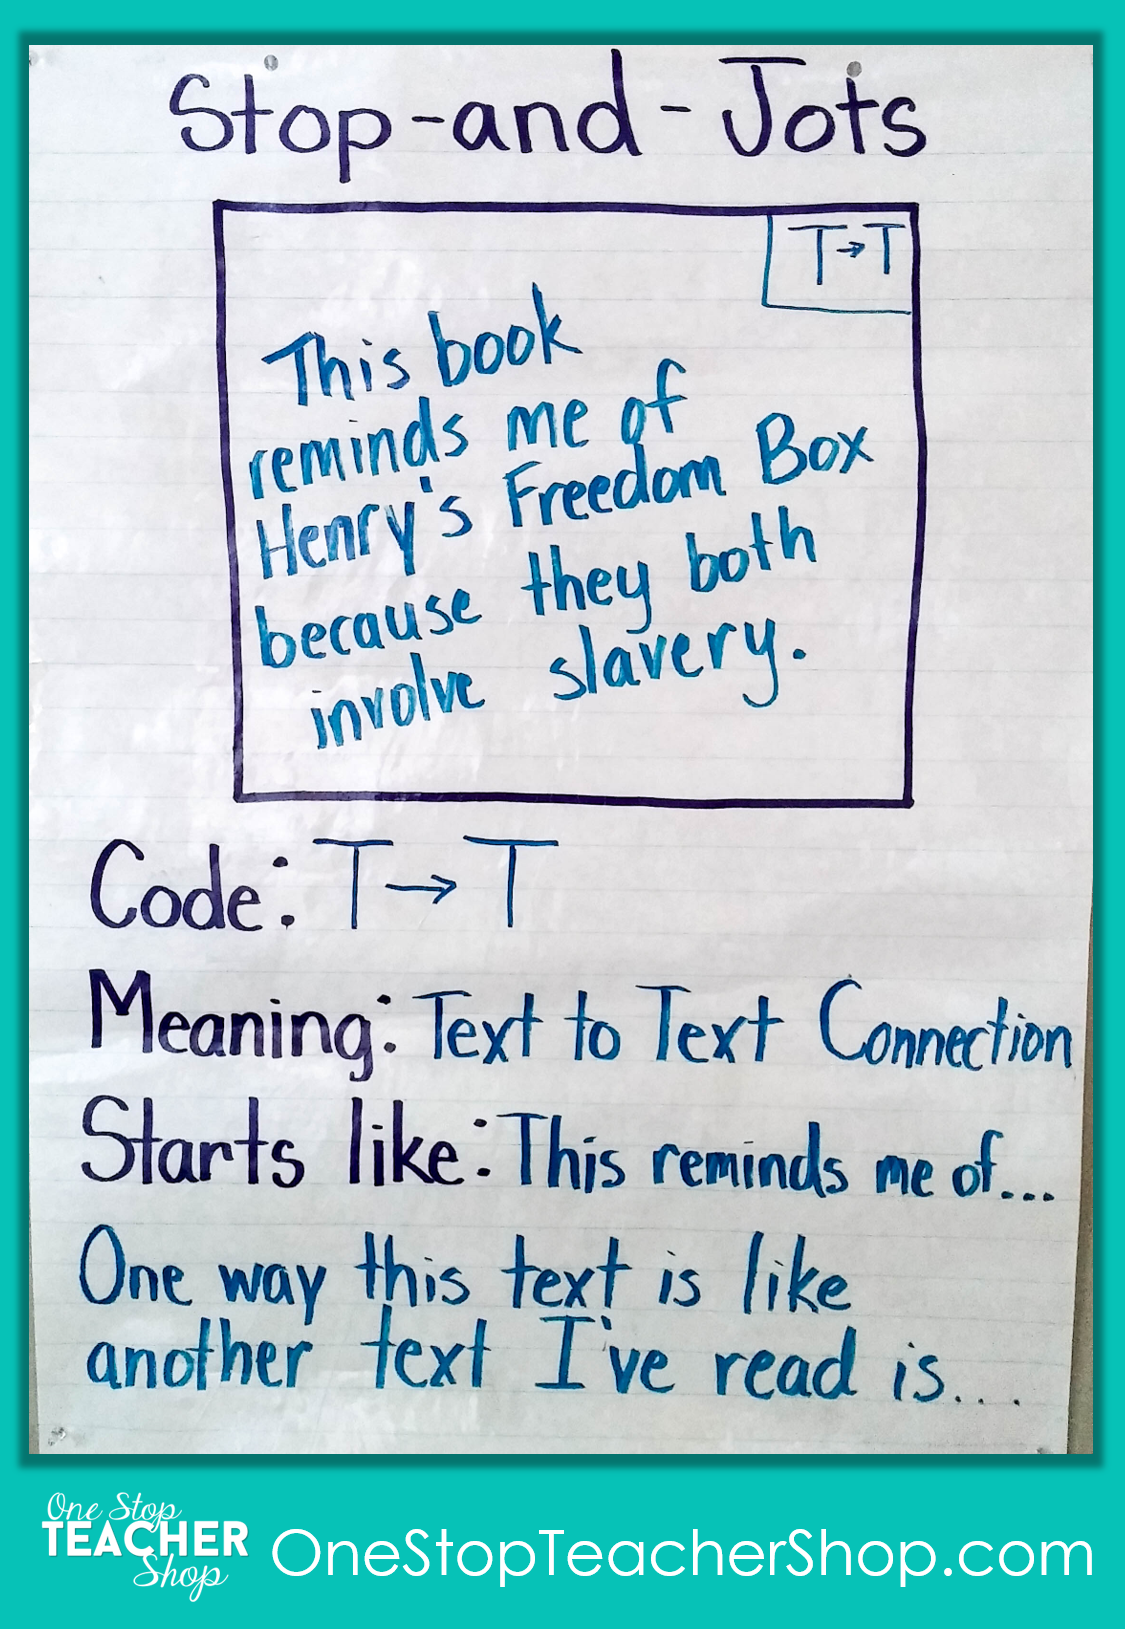 Stop-and-Jots
T→T
This book
reminds me of
Henry's Freedom Box
because they both
involve slavery.
Code: T→T
Meaning: Text to Text Connection
Starts like: This reminds me of...
One way this text is like
another text I've read is....
One Stop
TEACHER
Shop
OneStopTeacherShop.com